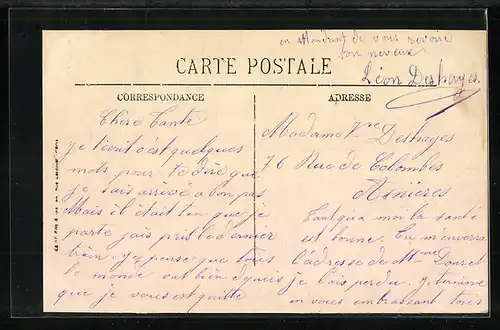 en attendant de vous revoire
ton neveux
Léon Deshayes.
CARTE POSTALE
CORRESPONDANCE
ADRESSE
Chère Tante
je t'écrit c'est quelques
mots pour te dire que
je suis arrivé a bon pas
Mais il était ten que je
parte jais pris le dernier
tréin. je pense que tous
le monde vat bien depuis
que je vous est quitte
Madame Vve Deshayes
76 Rue de Colombes
Asnières
Tant qu'a moi la santé
est bonne. Tu m'enverra
l'adresse de Mme Douret
je l'ais perdu. je termine
en vous embrassant tous